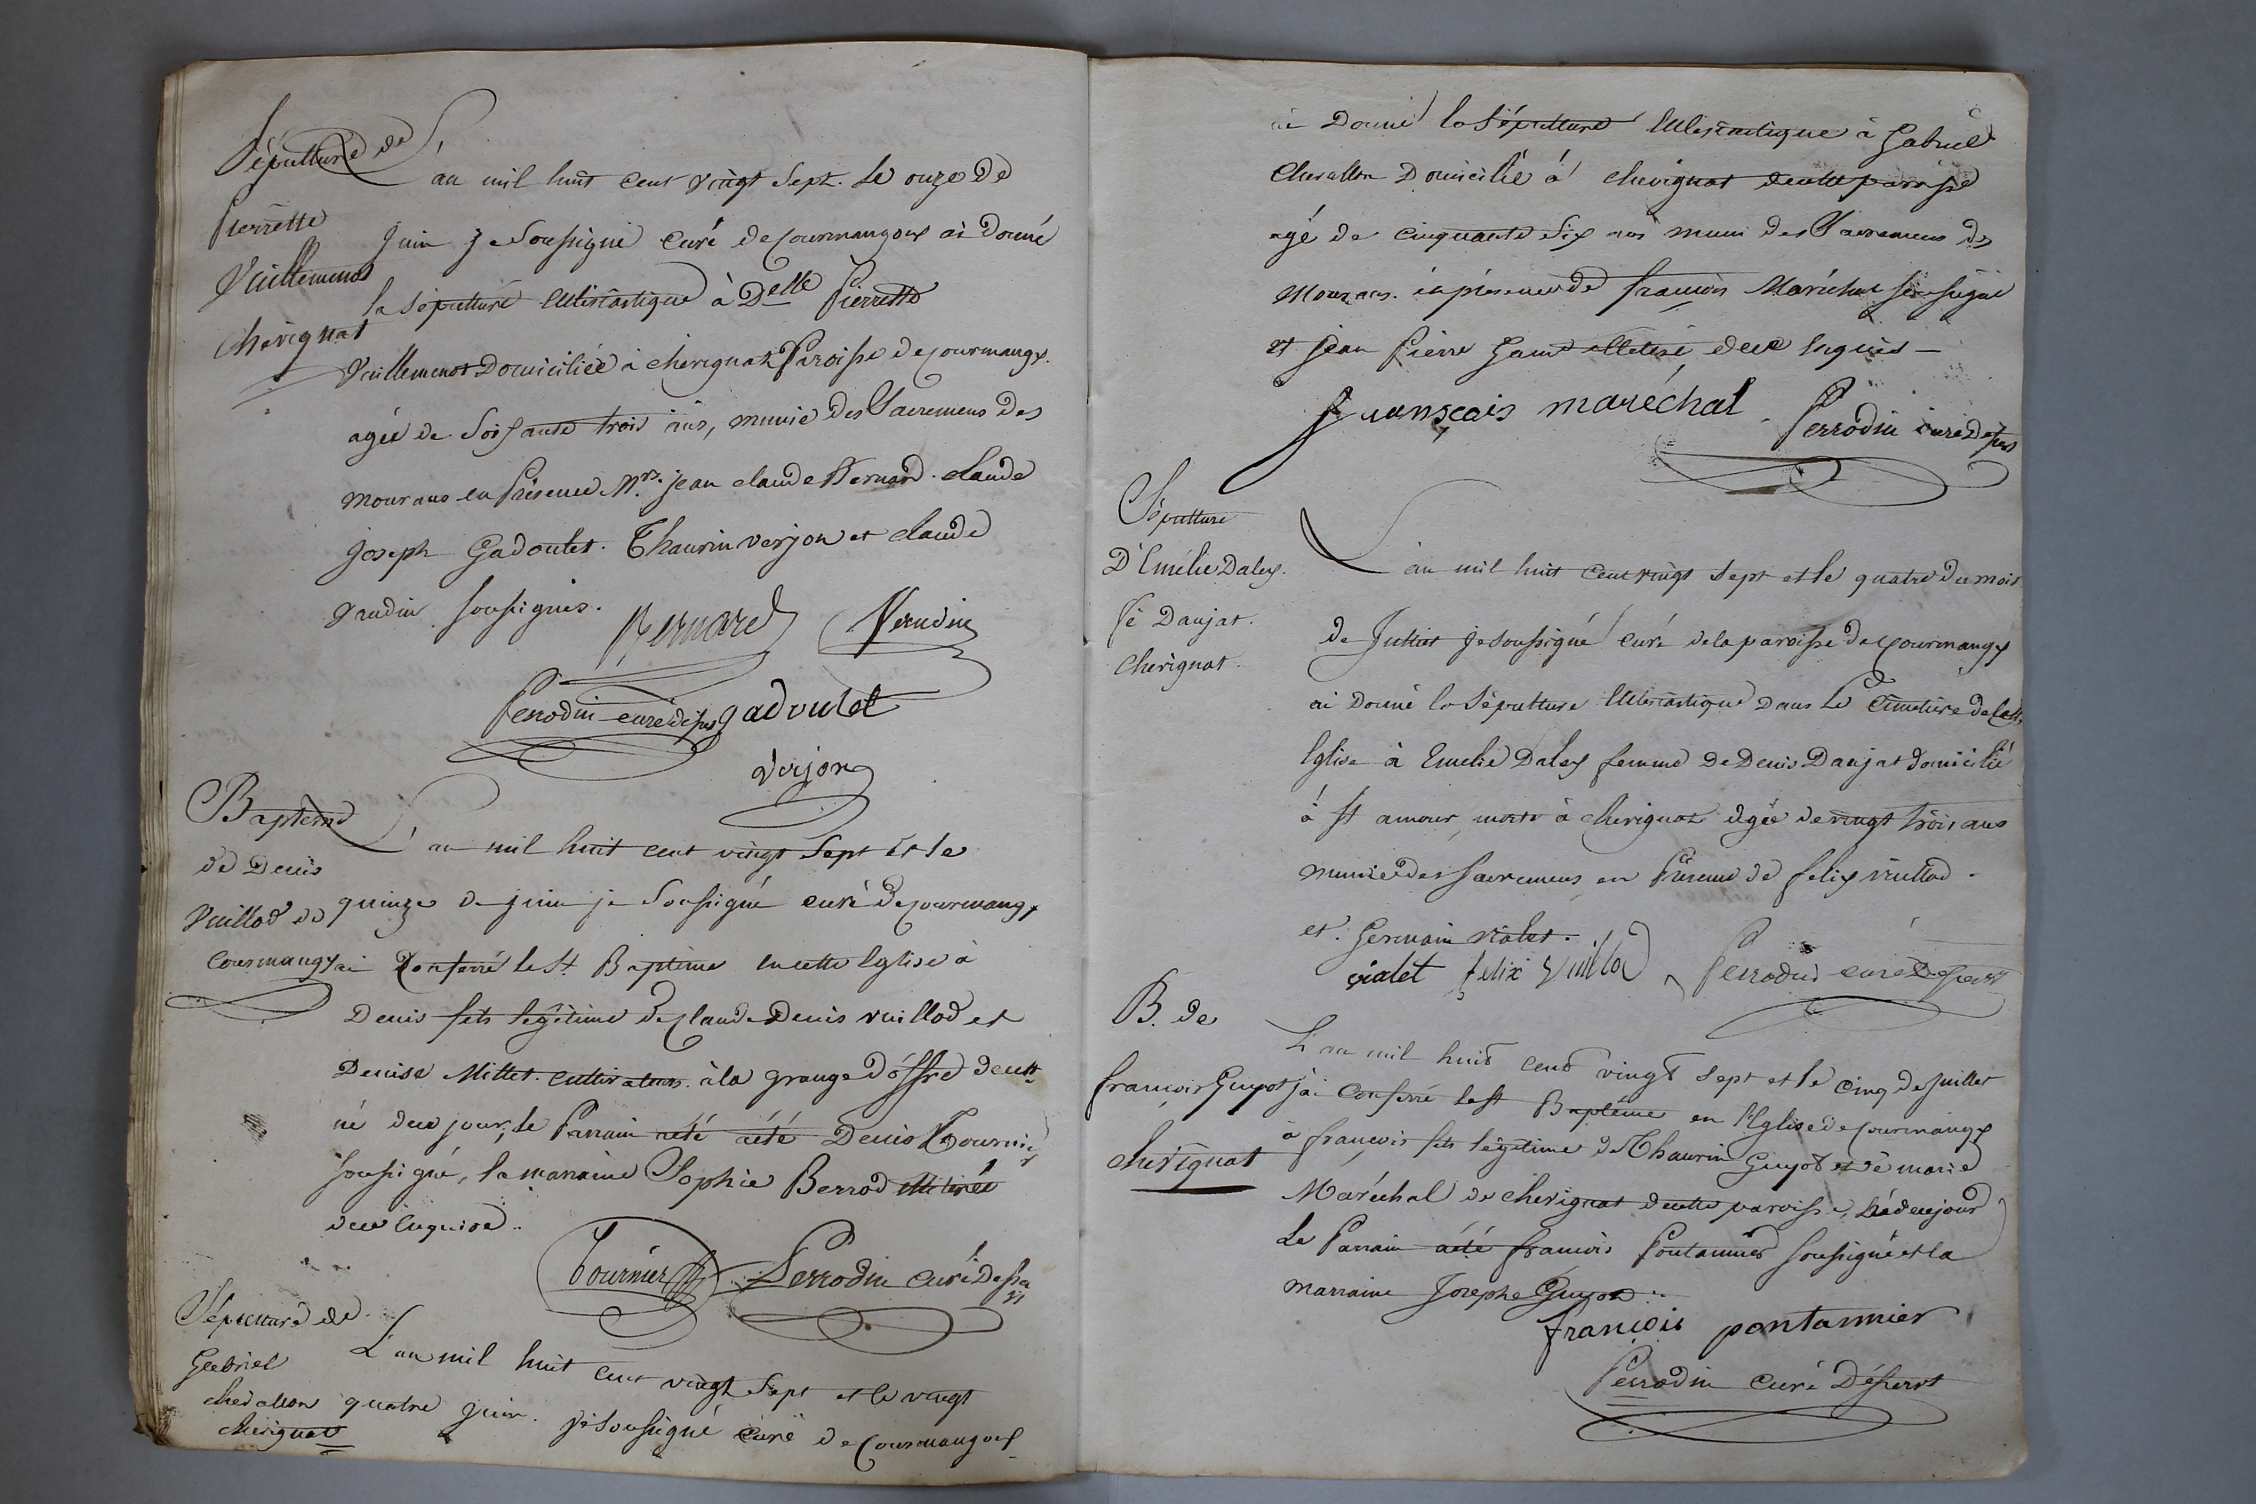 Sépulture de
Pierrette
Vuillemenot
Chevignat
L'an mil huit cent vingt sept. Le onze de
juin je soussigné curé de courmangoux ai donné
la sépulture Ecclésiastique à Delle Pierrette
Vuillemenot Domiciliée à chevignat Paroisse de courmangx.
agée de soissante trois ans, munie des Sacremens des
mourans en présence Mrs. jean claude Bernard. claude
joseph Gadoulet. Thaurin verjon et claude
vaudin soussignés.
Bernard Verudin
Perrodin curé desus gadoulet
Verjon
Baptême
de Denis
Vuillod de
Courmangx
L'an mil huit cent vingt sept et le
quinze de juin je soussigné curé de courmangx
ai conferé le St Baptême en cette Eglise à
Denis fils légitime de claude Denis vuillod et
Denise Millet. cultivateurs. à la grange d'offre decette
né dece jour, le Parrain aété aété Denis Tournier
soussigné, la marraine Sophie Berrod illiterée
dece enquise.
Tournier Perrodin curé Dessus
Sépulture de
Gabriel
chevallon
chevignat
L'an mil huit cent vingt sept et le vingt
quatre juin. je soussigné curé de courmangoux
ai Donné la Sépulture Ecclésiastique à Gabriel
Chevallon Domicilié à chevignat decette paroisse
agé de cinquante six ans muni des Sacremens des
Mourans. en présence de françois Maréchal soussigné
et jean pierre illeteré, dece enquis
franscais maréchal Perrodin curé Desus
Sépulture
D'Emélie Daley.
fe Daujat.
chevignat.
L'an mil huit cent vingt sept et le quatre du mois
de Juillet je soussigné curé dela paroisse de courmangx
ai donné la Sépulture Ecclésiastique dans le Cimetière de cette
Eglise à Emelie Daley femme de Denis Daujat domicilié
à St amour, morte à chevignat agée de vingt trois ans
munie des sacremens, en présence de felix vuillod.
et. Germain violet.
violet felix Vuillod Perrodin curé Dessus
B. de
françois Guyot
chevignat
L'an mil huit cent vingt sept et le cinq de juillet
j'ai conferé le St Baptême en l'Eglise de courmangx
à françois fils légitime de Thaurin Guyot et de marie
Maréchal de chevignat decette paroisse, né dece jour
Le Parrain aété françois Pontannier soussigné et la
marraine Josephe Guyot
françois pontannier
Perrodin curé Désusst